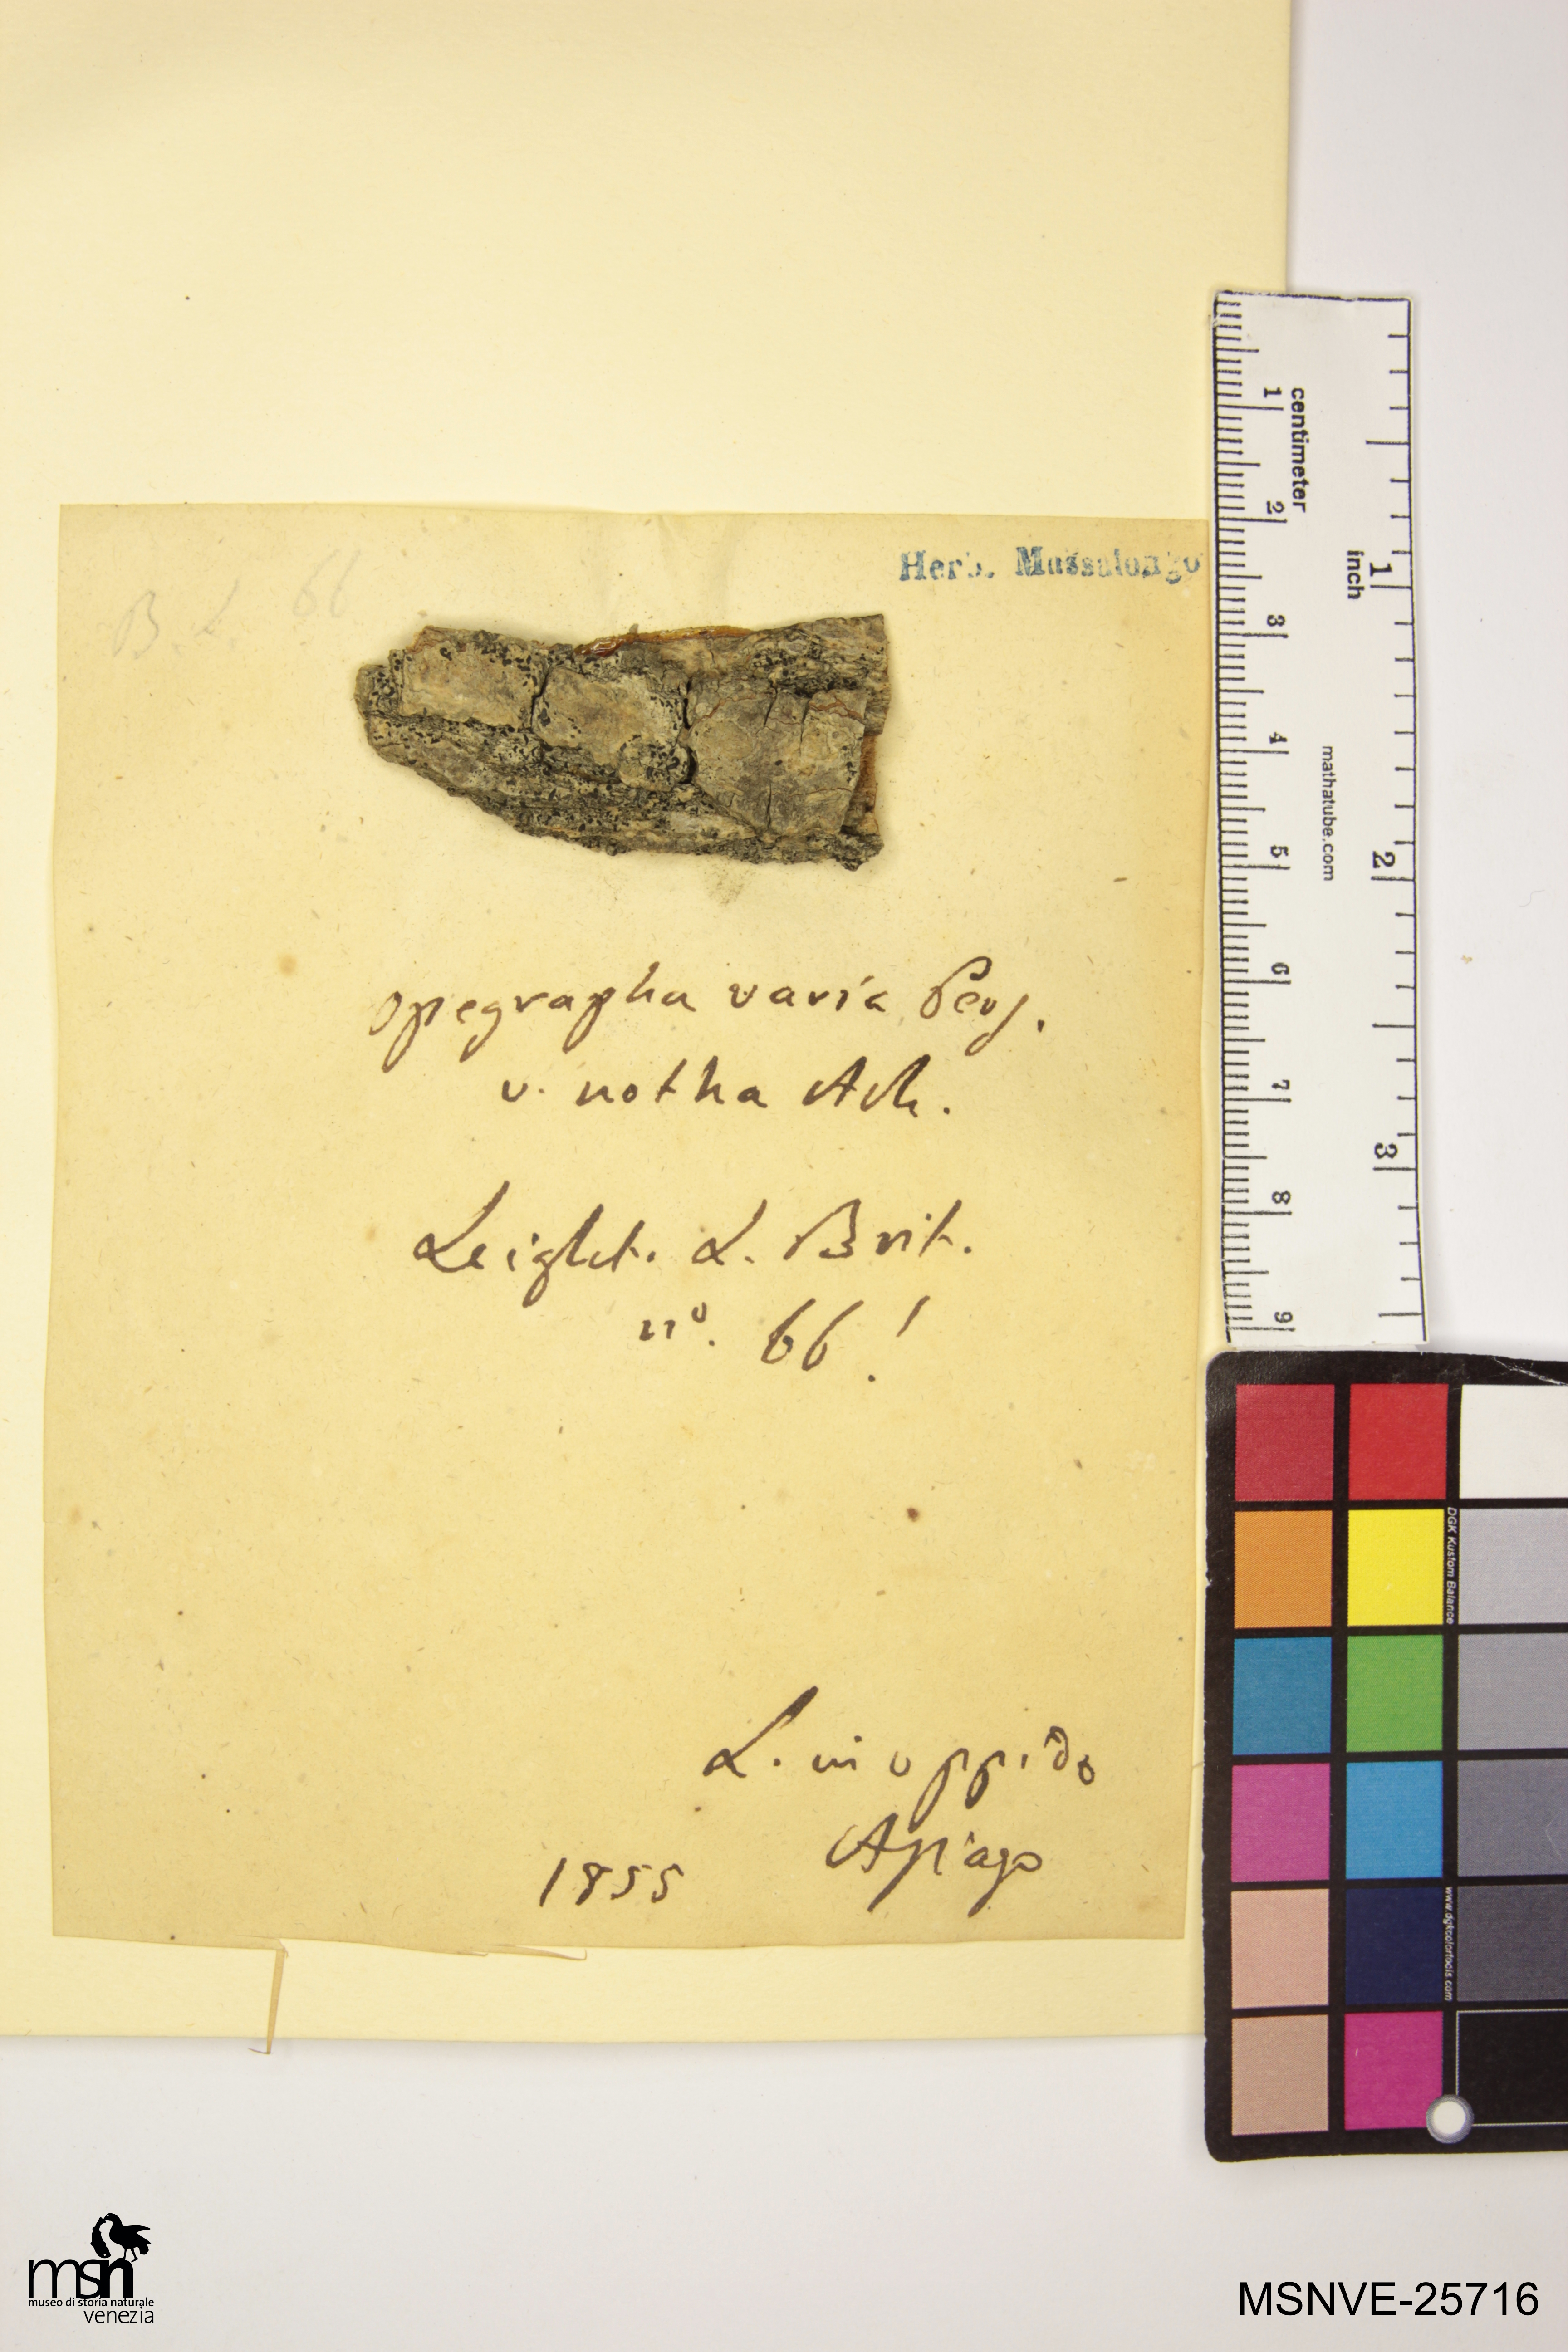 B. L. 66
Herb. Massalongo
Opegrapha varia Pers.
v. notha Ach.
Leight. L. Brit.
no. 66!
L. in oppido
Asiago
1855
centimeter
1 2 3 4 5 6 7 8 9
inch
1 2 3
mathatube.com
DGK Kustom Balance
www.dgkcolortools.com
msn
museo di storia naturale
venezia
MSNVE-25716